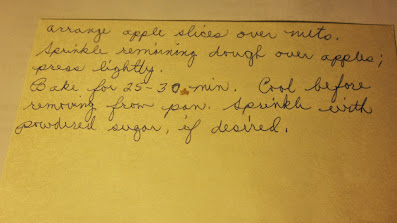 arrange apple slices over nuts.
Sprinkle remaining dough over apples;
press lightly.
Bake for 25-30 min. Cool before
removing from pan. Sprinkle with
powdered sugar, if desired.